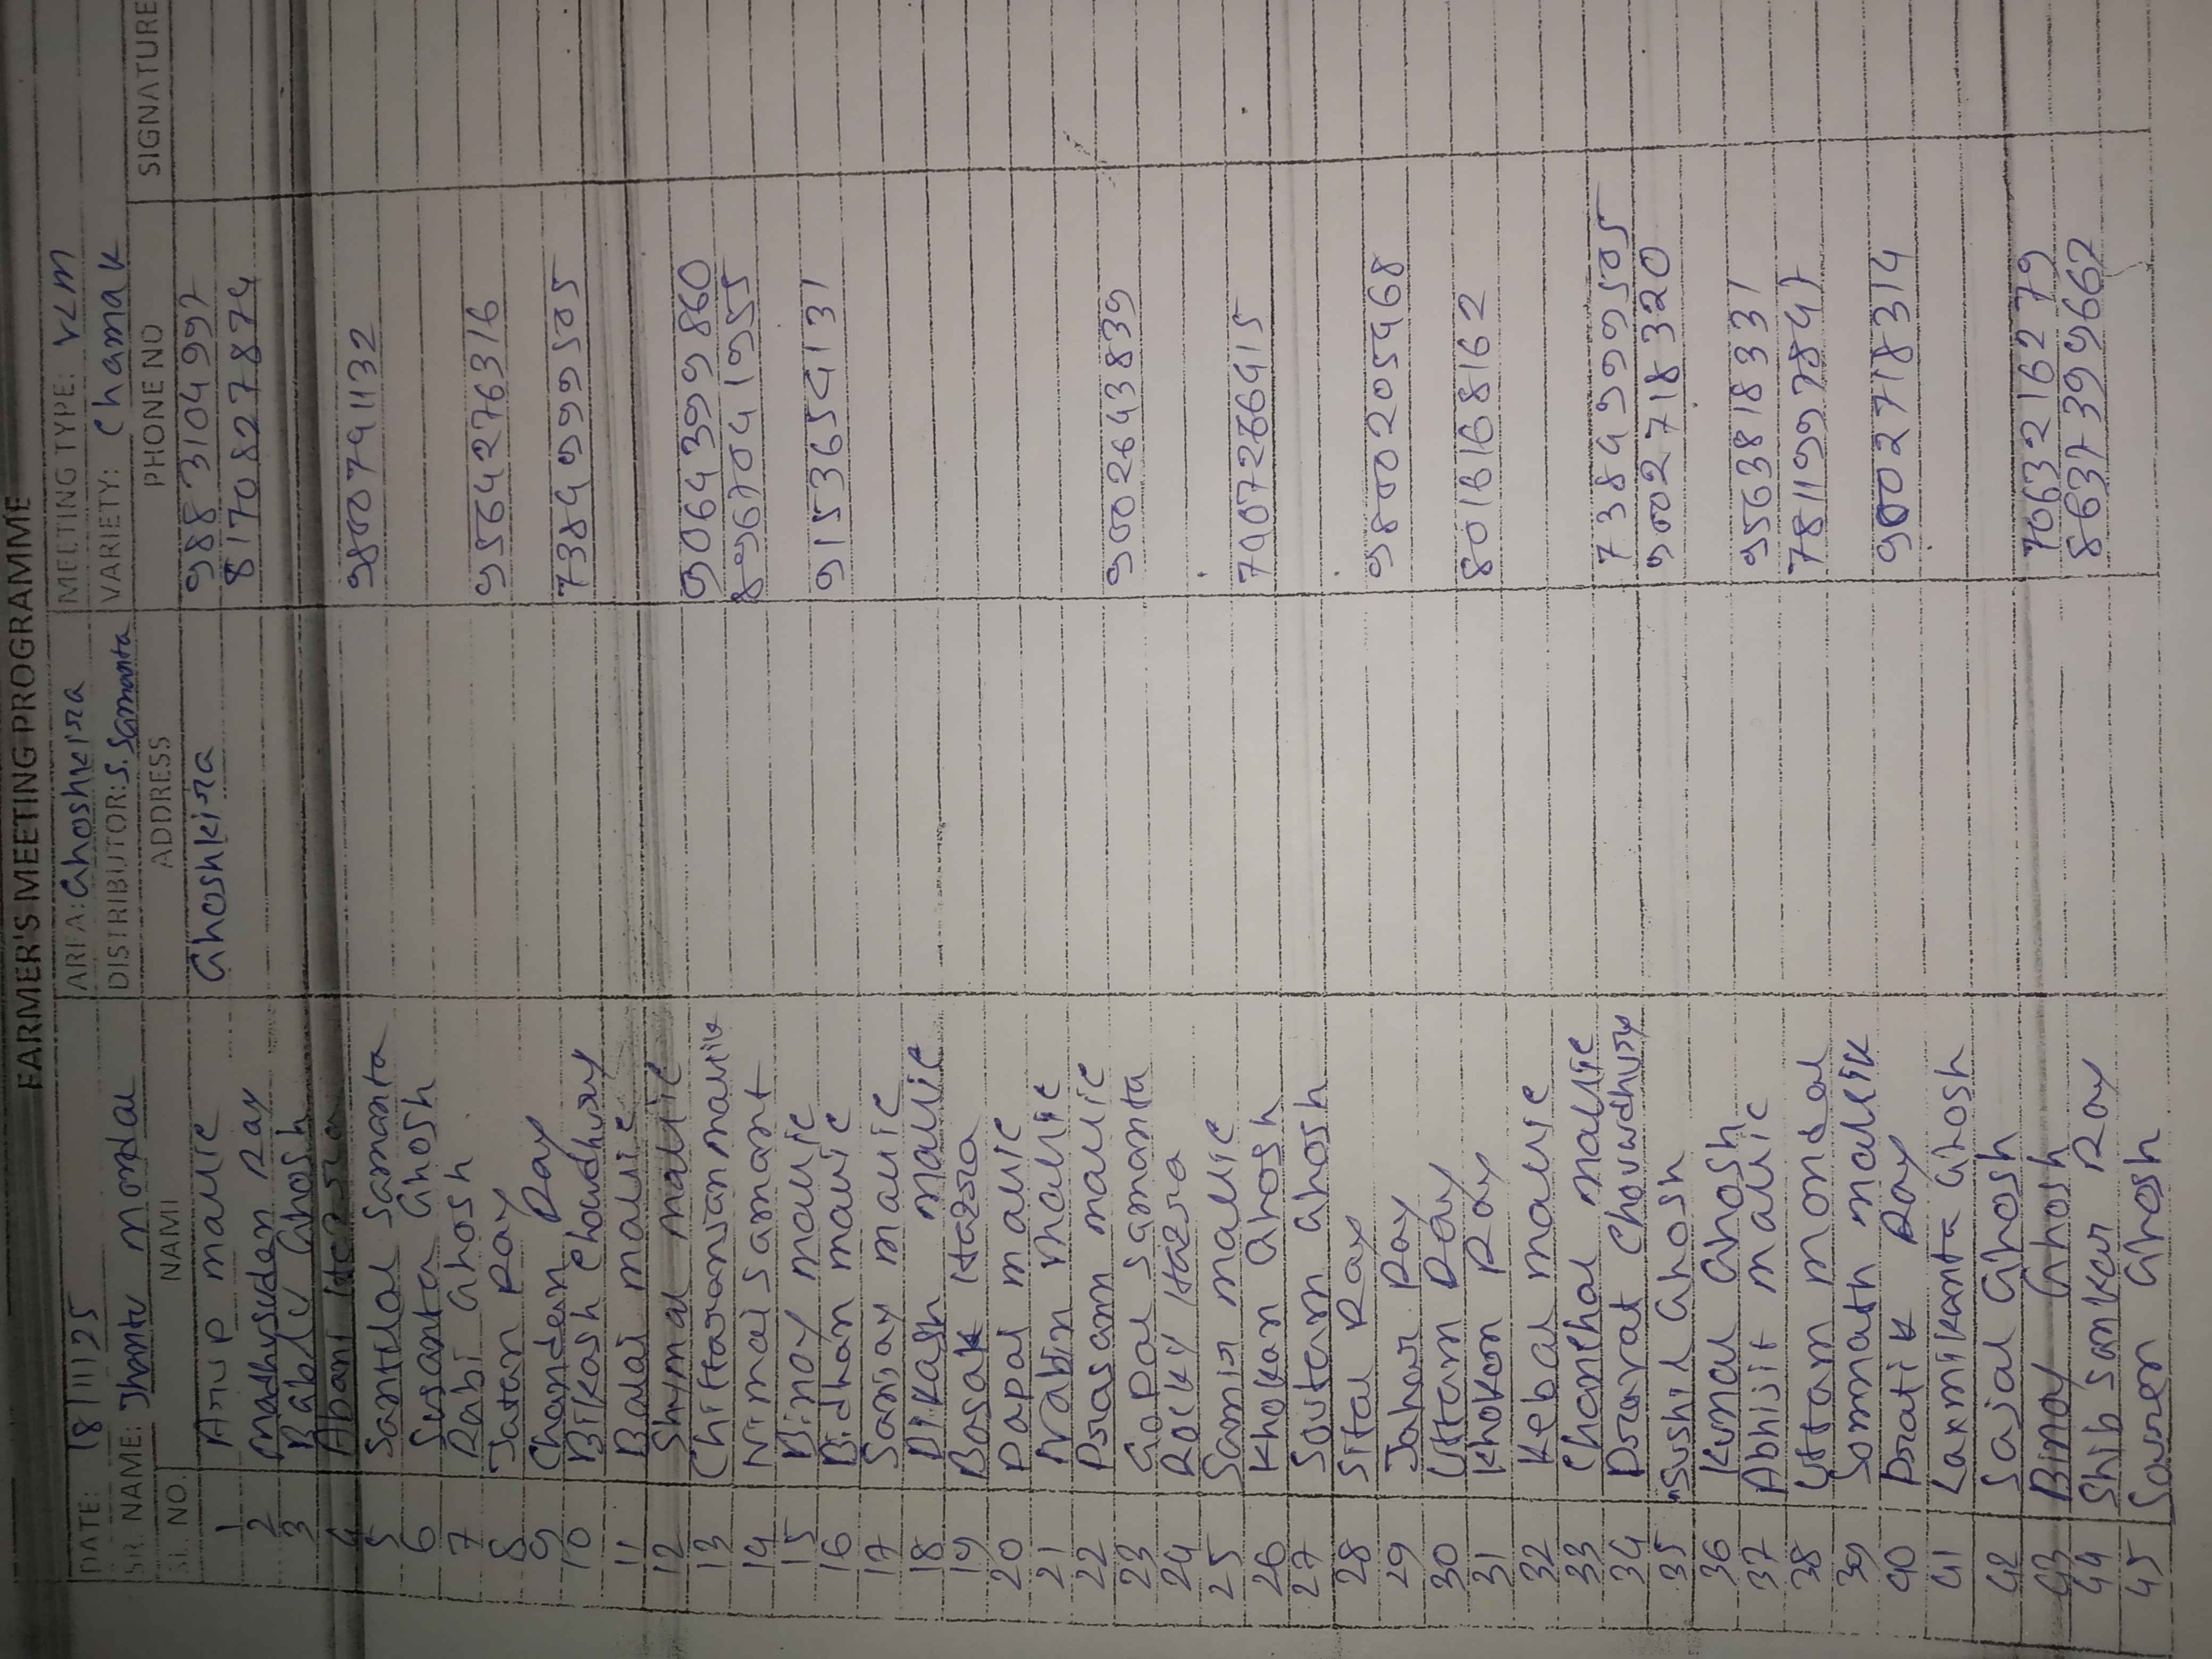 FARMER'S MEETING PROGRAMME
DATE: 18/11/25 AREA: Ghoshkira MEETING TYPE: VLM
SR. NAME: Jhantu mondal DISTRIBUTOR: S. Samanta VARIETY: Chamak
SL. NO. NAME ADDRESS PHONE NO SIGNATURE
1 Arup malic Ghoshkira 9883104997
2 Madhusuden Ray 8170827874
3 Bablu Ghosh
4 Abani Hazra
5 Santilal Samanta 9800791132
6 Susanta Ghosh
7 Rabi Ghosh
8 Jatan Ray 9564276316
9 Chanden Ray
10 Bikash Chowdhury 7384999505
11 Balai malic
12 Shymal malic
13 Chittaranjan malik 9064399860
14 Nimai Samant 8967041955
15 Binoy malic
16 Bidhan malic 9153654131
17 Sanjay malic
18 Bikash malic
19 Basak Hazra
20 Papai malic
21 Nabin malic
22 Prasann malic
23 Gopal Samanta 9002643839
24 Rocky Hazra
25 Samir malic
26 Khokan Ghosh 7407266415
27 Soutam Ghosh
28 Sital Ray
29 Jahar Ray 9800205468
30 Uttam Ray
31 Khokon Ray 8016168162
32 Kebal malic
33 Chanchal malic
34 Prarat Chouwdhury 7384999505
35 Sushil Ghosh 9002718320
36 Kunal Ghosh
37 Abhijit malic 9563818331
38 Uttam mondal 7811997847
39 Somnath mallik
40 Pratik Ray 9002718314
41 Laxmikanta Ghosh
42 Sajal Ghosh
43 Binoy Ghosh 7063216279
44 Shib Sankar Ray 8637399662
45 Soren Ghosh